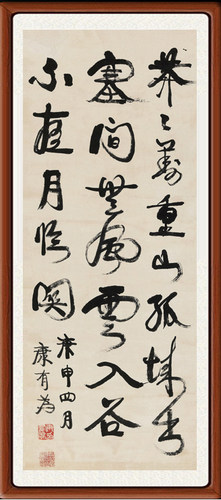 莽〻萬重山孤城出
塞間無風雲入谷
不夜月臨關
庚申四月
康有為